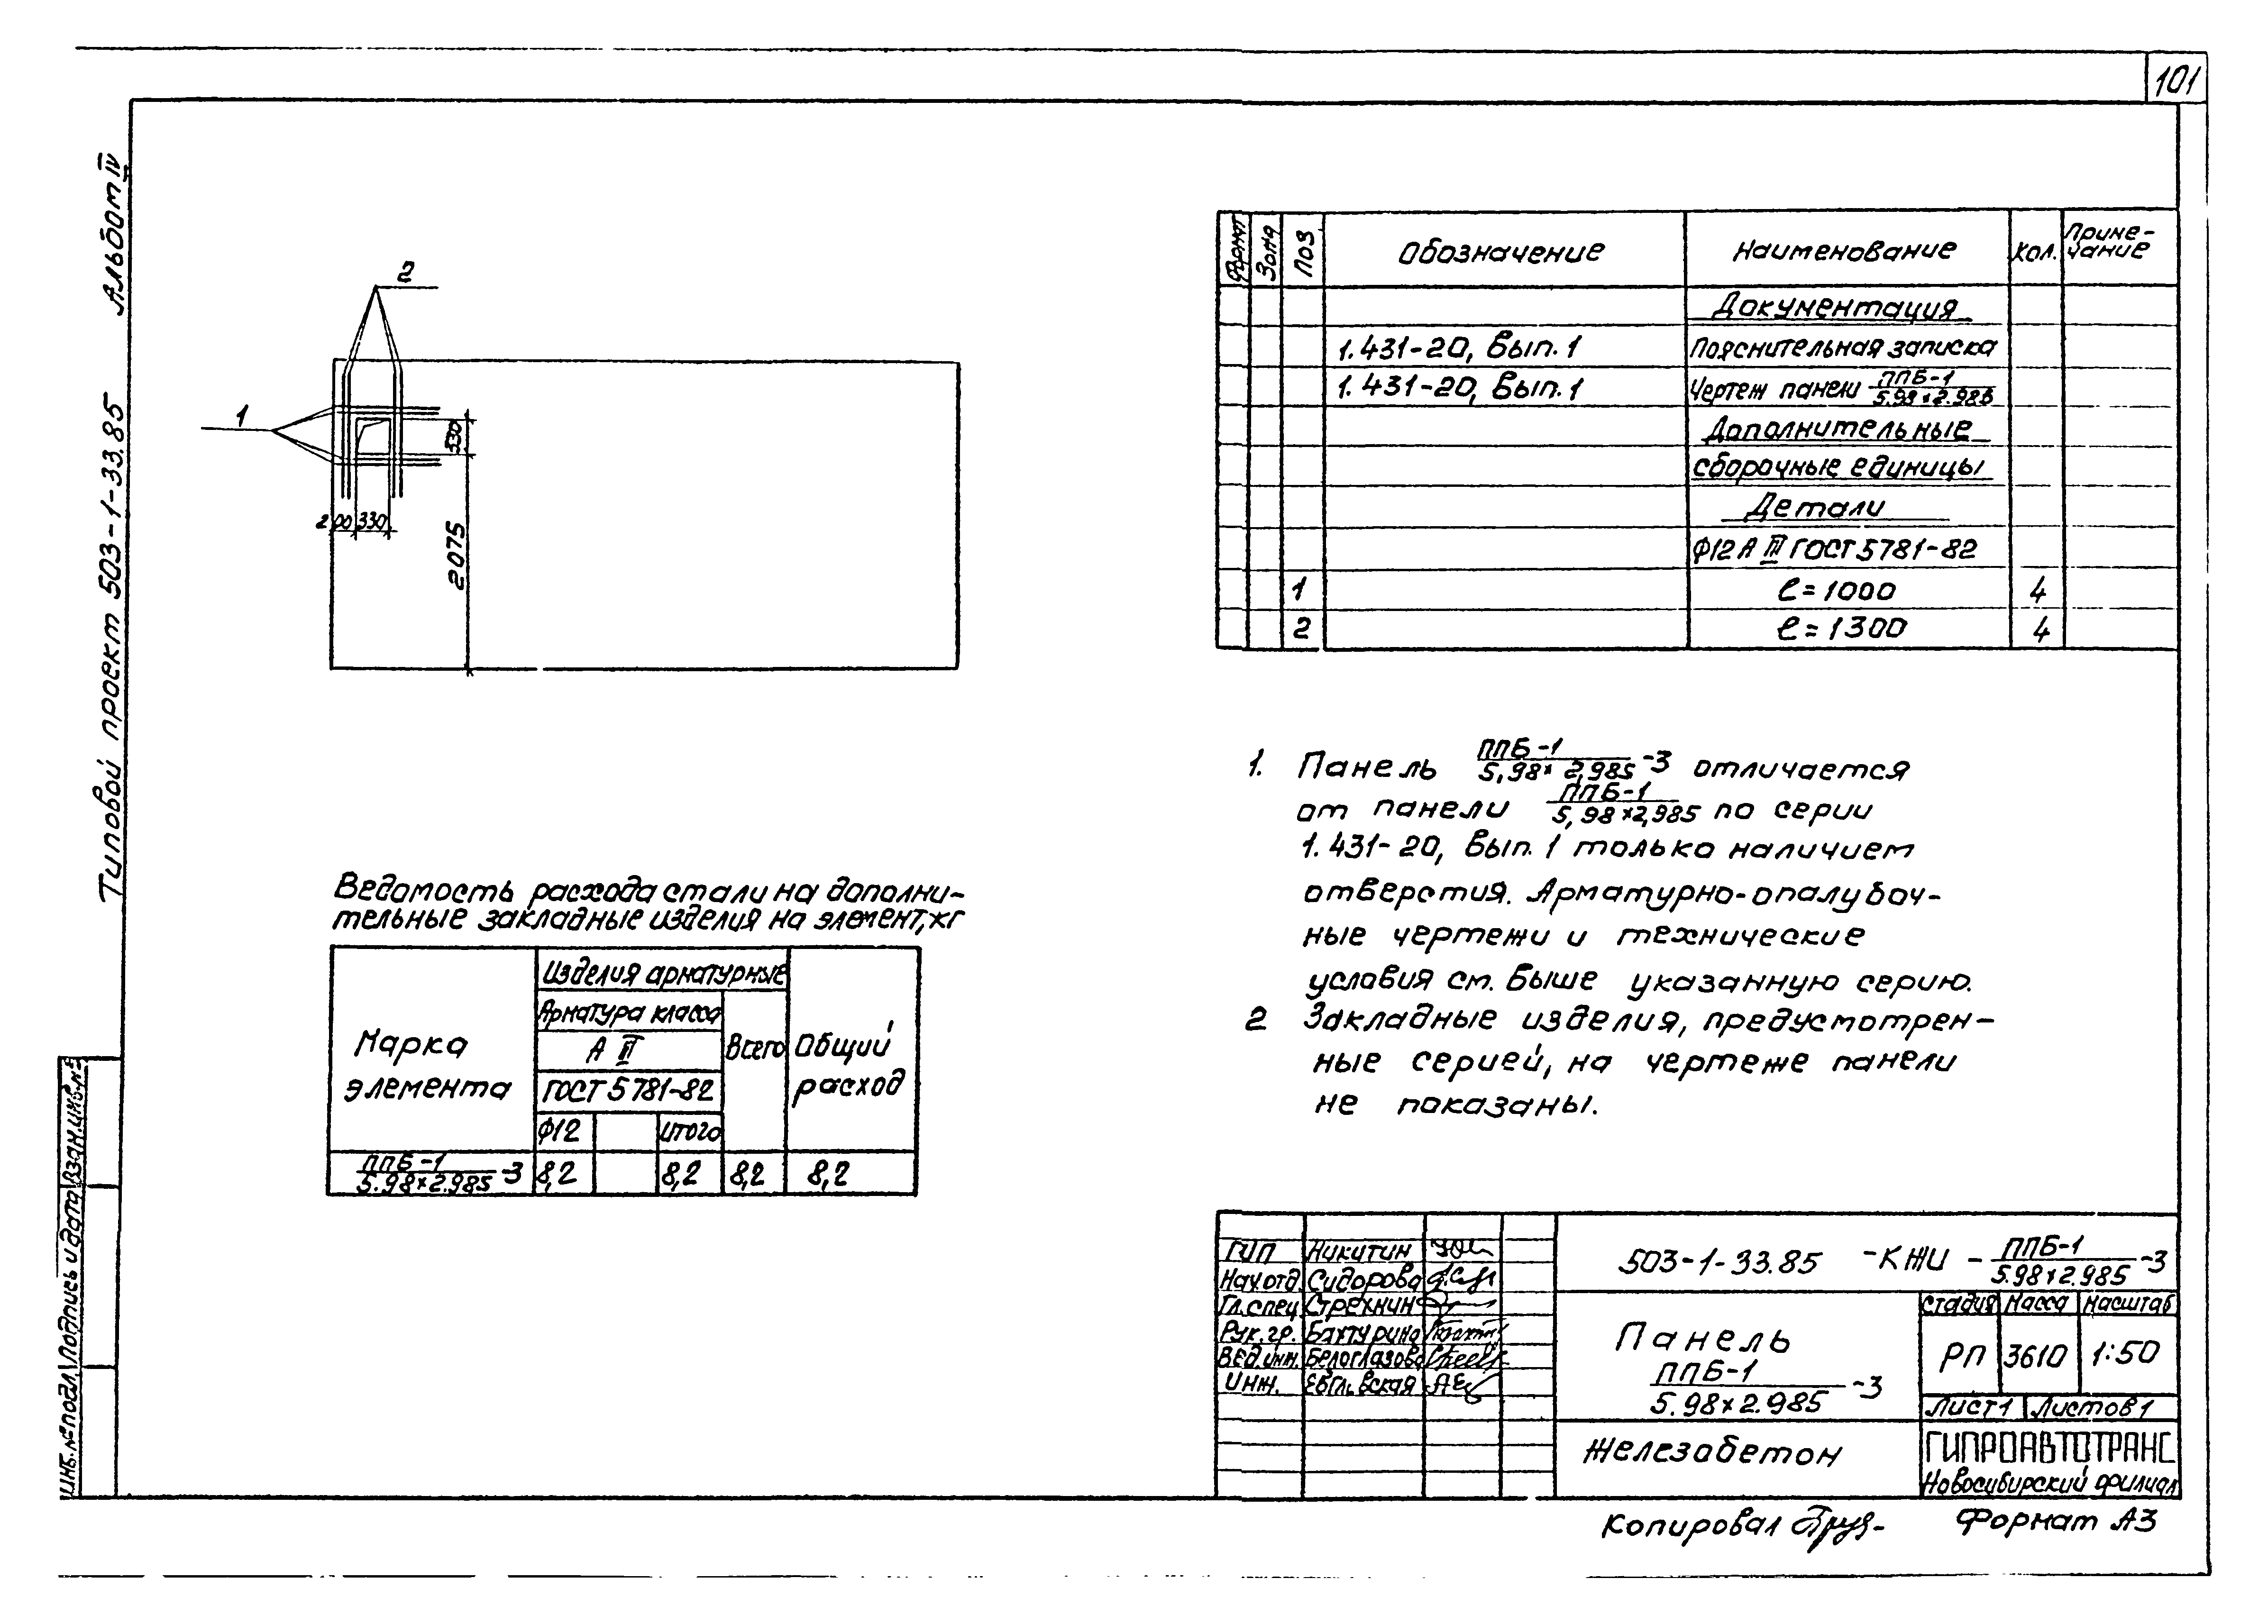 101
Альбом IV
Типовой проект 503-1-33.85
2
1
330
200 330
2075
Формат Зона Поз Обозначение Наименование Кол. Примечание
Документация
1.431-20, Вып. 1 Пояснительная записка
1.431-20, Вып. 1 Чертеж панели ППБ-1 / 5.98×2.985
Дополнительные
сборочные единицы
Детали
Ф12 А III ГОСТ 5781-82
1 ℓ=1000 4
2 ℓ=1300 4
1. Панель ППБ-1 / 5,98×2,985 -3 отличается
от панели ППБ-1 / 5,98×2,985 по серии
1.431-20, Вып. 1 только наличием
отверстия. Арматурно-опалубоч-
ные чертежи и технические
условия см. Выше указанную серию.
2 Закладные изделия, предусмотрен-
ные серией, на чертеже панели
не показаны.
Ведомость расхода стали на дополни-
тельные закладные изделия на элемент, кг
Марка элемента
Изделия арматурные
Арматура класса
А III
ГОСТ 5781-82
Ф12 Итого
Всего
Общий расход
ППБ-1 / 5.98×2.985 -3 8,2 8,2 8,2 8,2
ГИП Никитин
Нач.отд. Сидорова
Гл.спец. Стрехнин
Рук.гр. Бахтурина
Вед.инж. Белоглазова
Инж.
503-1-33.85 -КЖИ - ППБ-1 / 5.98×2.985 -3
Панель
ППБ-1 / 5.98×2.985 -3
Стадия Масса Масштаб
РП 3610 1:50
Лист 1 Листов 1
Железобетон
ГИПРОАВТОТРАНС
Новосибирский филиал
Копировал
Формат А3
Инв.№ подл. Подпись и дата Взам.инв.№